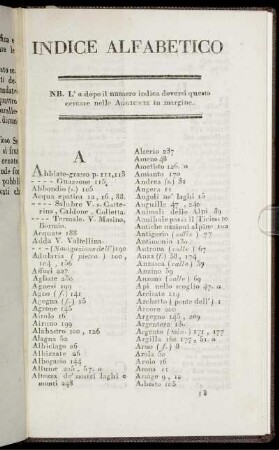 INDICE ALFABETICO
NB. L' a dopo il numero indica doversi questo
cercare nelle AGGIUNTE in margine.
A
Abbiate-grasso p. 111, 118
---- Guazzone 115,
Abbondio (s.) 105
Acqua epatica 12, 16, 88.
---- Salubre V. s. Catte-
rina, Caldone, Colletta.
---- Termale. V. Masino,
Bormio.
Acquate 188
Adda V. Valtellina.
---- (Navigazione dell') 190
Adularia (pietra) 100,
104, 156
Affori 227
Agliate 250
Agnesi 199
Agno (f.) 141
Agogna (f.) 16
Agrone 145
Airolo 16
Airuno 199
Albiate 250
Alagna 50
Albiciago 26
Albizzate 26
Albogasio 144
Albume 225, 57. a
Altezza de' nostri laghi e
monti 248
Alzerio 237
Ameno 48
Ametisto 126. a
Amianto 170
Andrea (s.) 81
Angera 11
Angoli ne' laghi 15
Anguille 47, 240
Animali delle Alpi 89
Annibale passa il Ticino 10
Antiche nazioni alpine 101
Antigorio (valle) 77
Antimonio 130
Antrona (valle) 67
Anza (f.) 58, 174
Anzasca (valle) 59
Anzino 59
Anzoni (valle) 69
Api nello scoglio 47. a
Arcisate 219
Arcore 200
Argegno 145, 209
Argentera 180
Argento (min.) 171, 177
Argilla 160 177, 51. a
Arno (f.) 8
Arola 50
Arolo 16
Arona 11